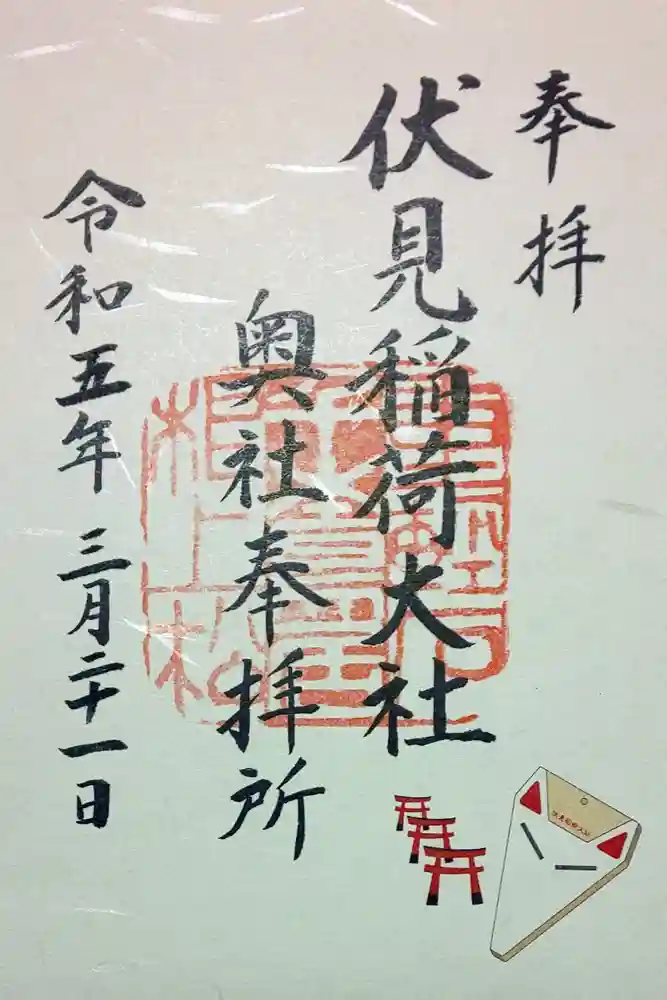 奉拝
伏見稲荷大社
奥社奉拝所
令和五年 三月二十一日